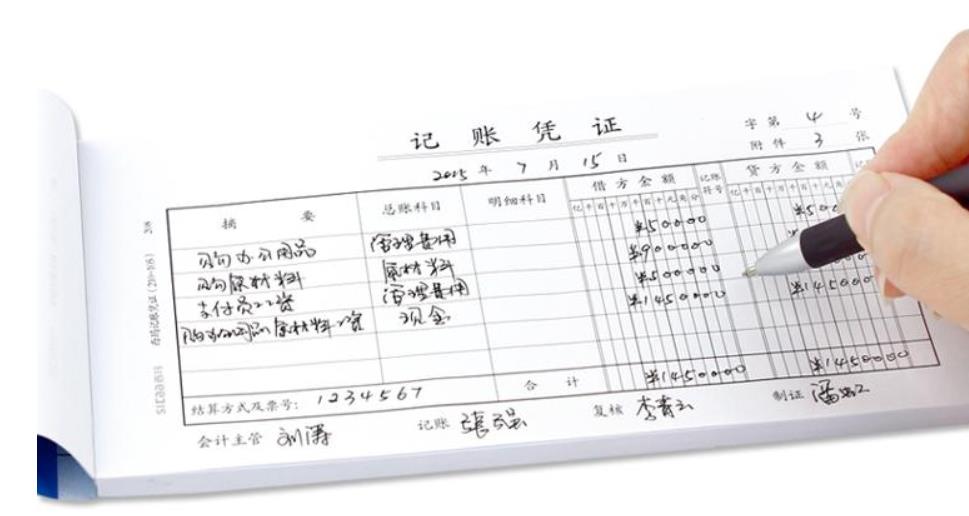 记账凭证
字第 4 号
2015 年 7 月 15 日
附件 3 张
摘要 总账科目 明细科目 借方金额 记账符号 贷方金额
亿千百十万千百十元角分 亿千百十万千百十元
购办公用品 管理费用 ¥50000
购原材料 原材料 ¥900000
支付员工工资 管理费用 ¥500000
购办公用品、原材料、工资 现金 ¥1450000 ¥145000
结算方式及票号: 1234567 合计 ¥1450000 ¥1450000
会计主管 刘涛 记账 张强 复核 李青云 制证